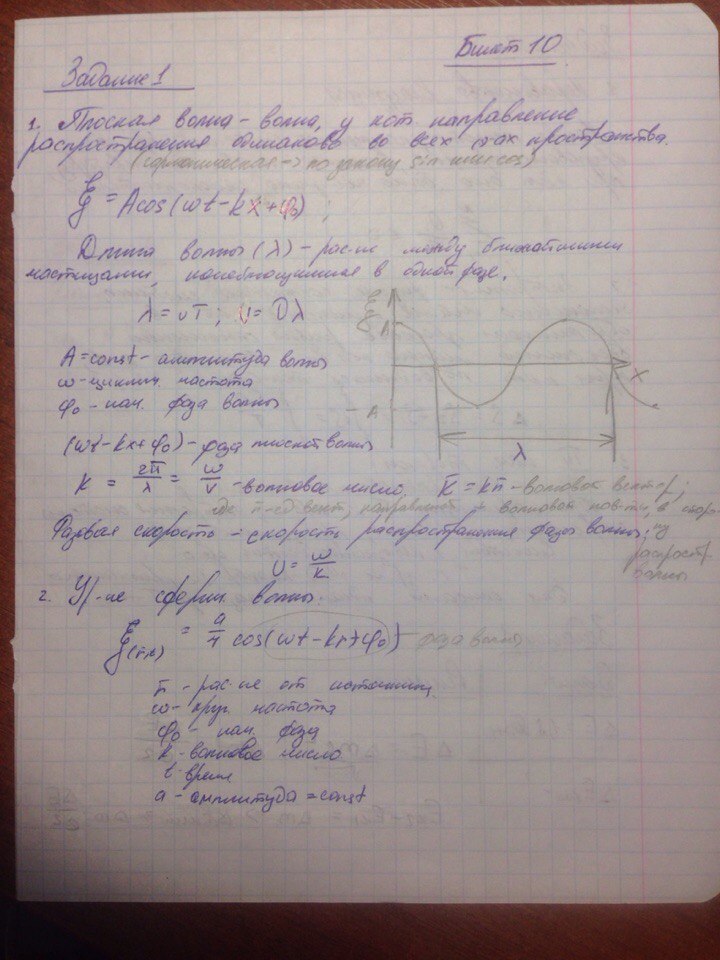 Билет 10
Задание 1
1. Плоская волна - волна, у кот. направление
распространения одинаково во всех т-ах пространства.
(гармоническая -> по закону sin или cos)
ξ = A cos(ωt - kx + φ₀);
Длина волны (λ) - рас-ие между ближайшими
частицами, колеблющимися в одной фазе.
λ = υT; υ = νλ
ξ
A
-A
x
λ
A = const - амплитуда волны
ω - циклич. частота
φ₀ - нач. фаза волны
(ωt - kx + φ₀) - фаза плоской волны
k = 2π/λ = ω/v - волновое число. k̄ = kn̄ - волновой вектор,
где n̄ - ед. вект, направлений ⊥ волновой пов-ти, в стор-
Фазовая скорость - скорость распространения фазы волны;
ну
распростр.
волны
υ = ω/k
2. Ур-ие сферич. волны
ξ(r,t) = a/r cos(ωt - kr + φ₀) - фаза волны
r - рас-ие от источника
ω - круг. частота
φ₀ - нач. фаза
k - волновое число
t - время
a - амплитуда = const